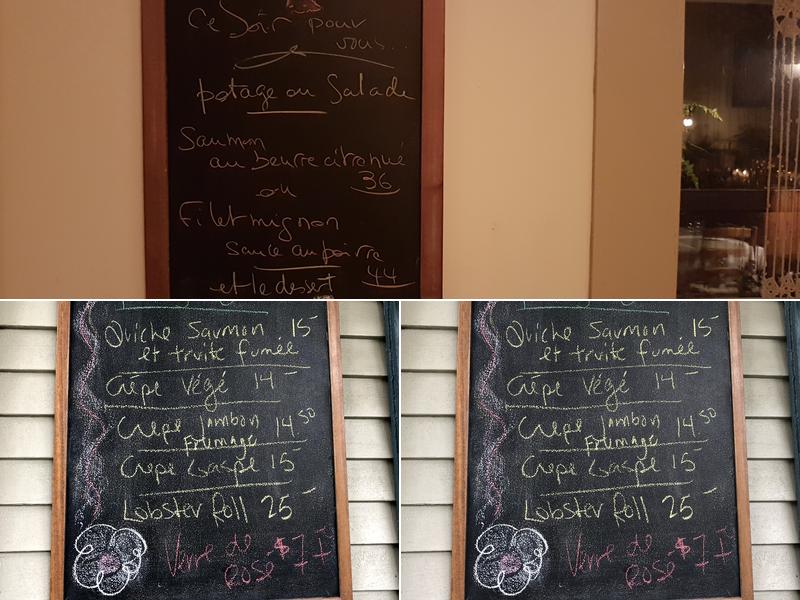 Ce Soir pour
vous...
potage ou Salade
Saumon
au beurre citronné
36
ou
Filet mignon
Sauce au poivre
et le dessert 44
Quiche Saumon 15-
et truite fumée
Crêpe Végé 14-
Crêpe Jambon 14 50
Fromage
Crêpe Gaspé 15-
Lobster Roll 25-
Verre de
Rosé $7
Quiche Saumon 15-
et truite fumée
Crêpe Végé 14-
Crêpe Jambon 14 50
Fromage
Crêpe Gaspé 15-
Lobster Roll 25-
Verre de
Rosé $7